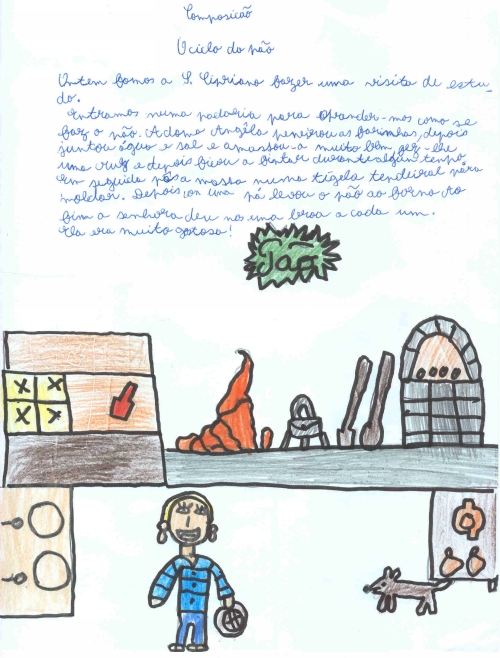 Composição
O ciclo do pão
Ontem fomos a S. Cipriano fazer uma visita de estu-
do.
Entramos numa padaria para aprander-mos como se
faz o pão. A dona Angêla peneirou as farinhas, depois
juntou água e sal e amassou-a muito bem, fez-lhe
uma cruz e depois ficou a fintar durante algum tempo.
Em seguida pôs a massa numa tigela tendeiral pára
moldar. Depois con uma pá levou o pão ao forno. Ao
fim a senhora deu-no uma broa a cada um.
Ela era muito gotosa!